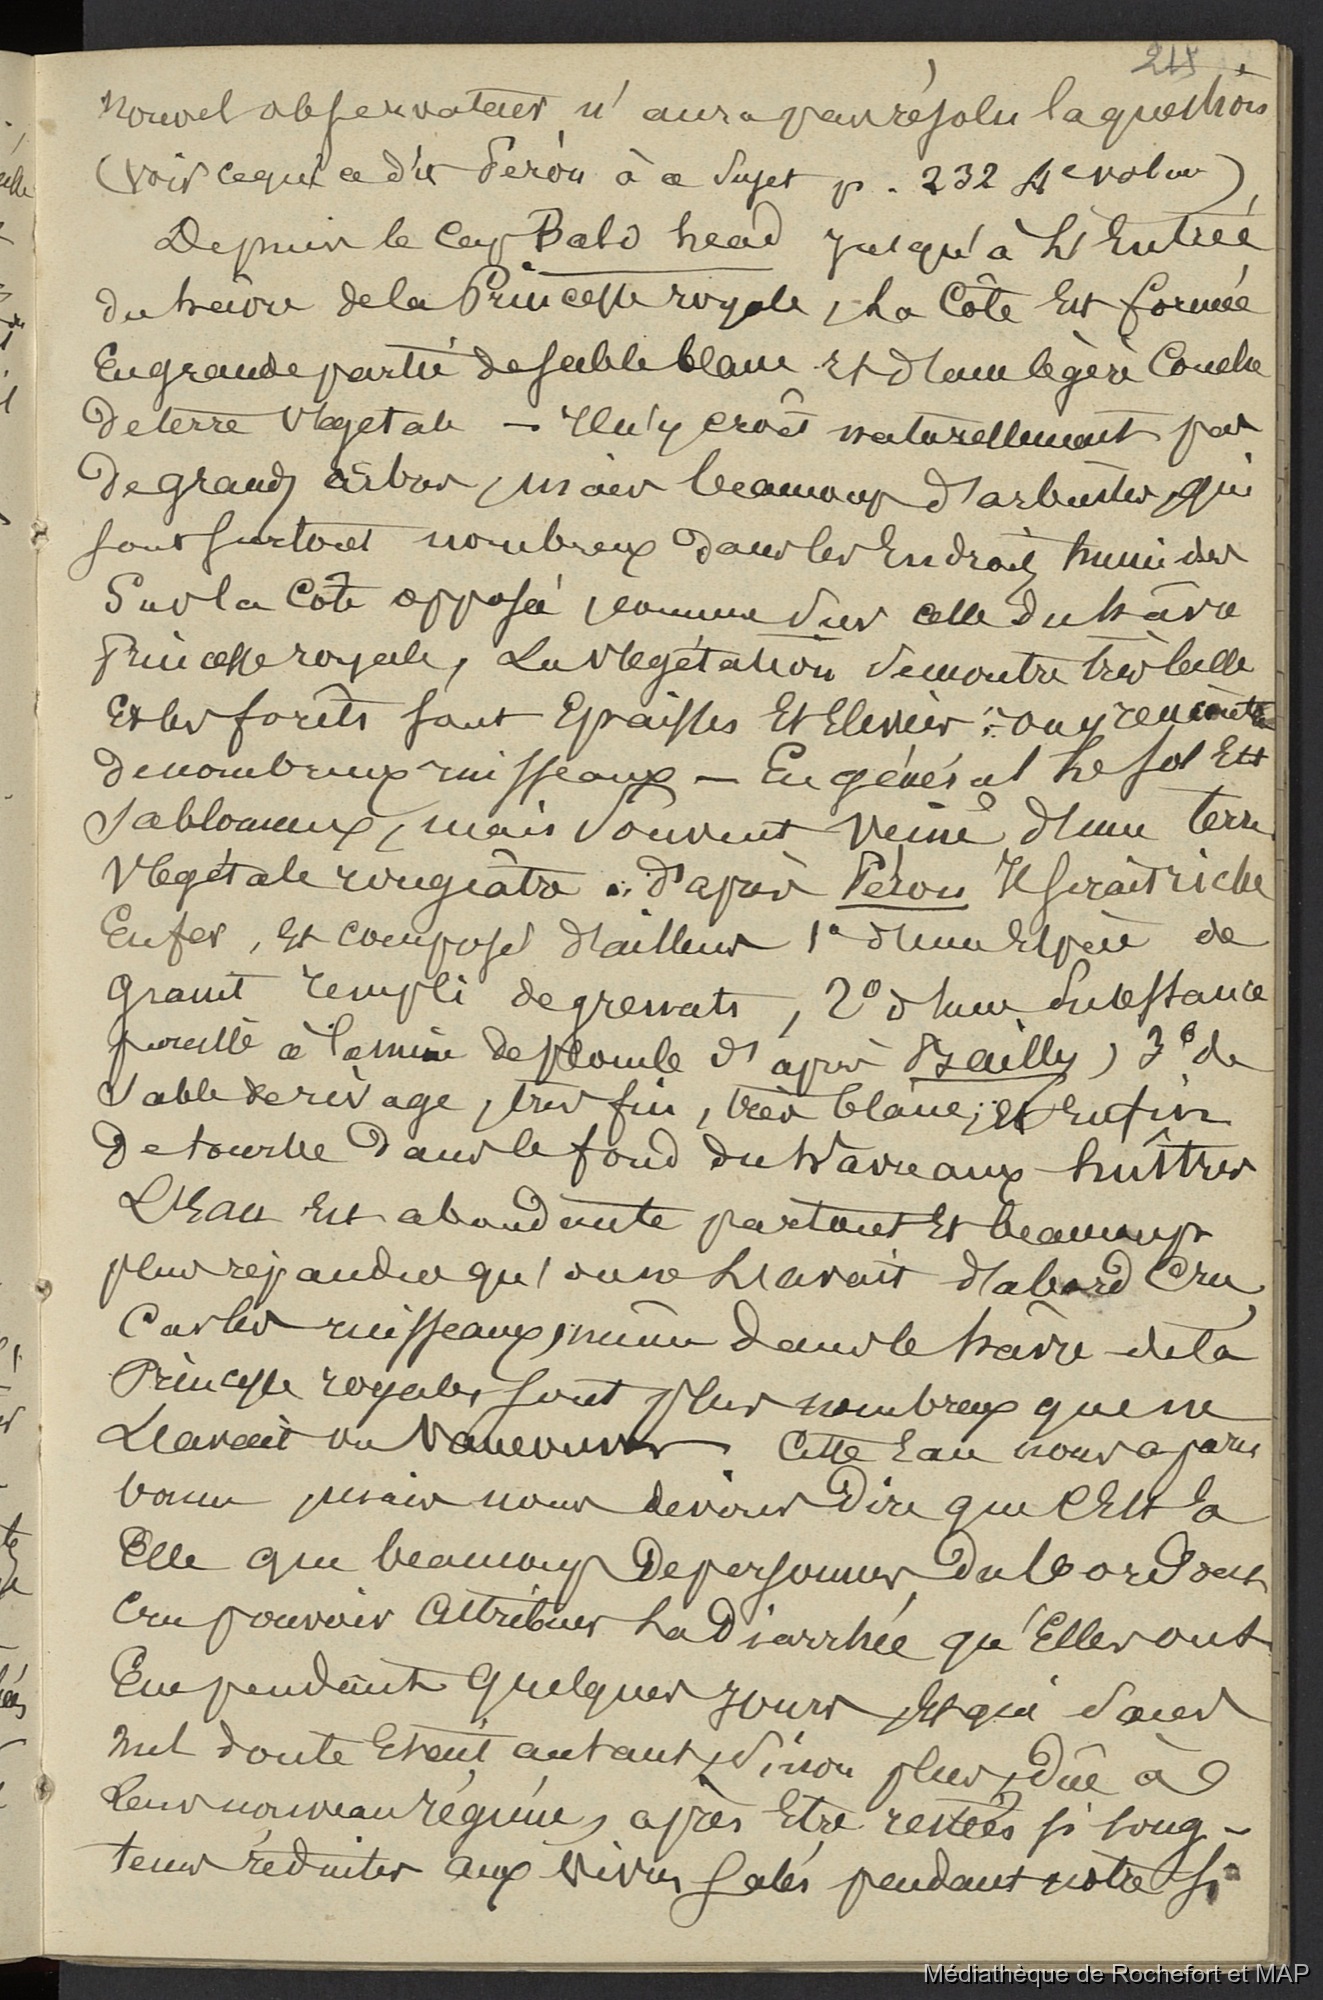 215
nouvel observateur n'aura pas résolu la question
(voir ce qu'a dit Péron à ce sujet p. 232 4e volume)
Depuis le Cap Bald head jusqu'à l'Entrée
du hâvre de la Princesse royale, la Côte Est formée
En grande partie de sable blanc Et d'une légère Couche
De terre Végétale — Il n'y croît naturellement pas
De grands arbres, mais beaucoup d'arbustes, qui
sont surtout nombreux dans les Endroits humides
Sur la Côte opposée, comme sur celle du hâvre
Princesse royale, La Végétation se montre très belle
Et les forêts sont Epaisses Et Elevées : on y rencontre
de nombreux ruisseaux — En général le sol Est
Sablonneux, mais souvent veiné d'une terre
Végétale rougeâtre . d'après Péron Il serait riche
En fer, Et composé d'ailleurs 1o d'une Espèce de
Granit rempli de grenats, 2o d'une Substance
pareille à la mine de plomb d'après Bailly, 3o de
Sable de rivage, très fin, très blanc, et Enfin
De tourbe Dans le fond du Havre aux huîtres
L'Eau Est abondante partout Et beaucoup
plus répandue qu'on ne l'avait d'abord Cru,
Car les ruisseaux, même dans le hâvre de la
Princesse royale, sont plus nombreux que ne
L'avait vu Vancouver. Cette Eau nous a paru
bonne, mais nous devons Dire que c'Est à
Elle que beaucoup De personnes Du bord ont
Cru pouvoir attribuer La Diarrhée qu'Elles ont
Eue pendant quelques jours, Et qui sans
nul doute Etait autant, sinon plus, Dûe à
leur nouveau régime, après Etre restées si long-
tems réduites aux vivres salés pendant notre si
Médiathèque de Rochefort et MAP